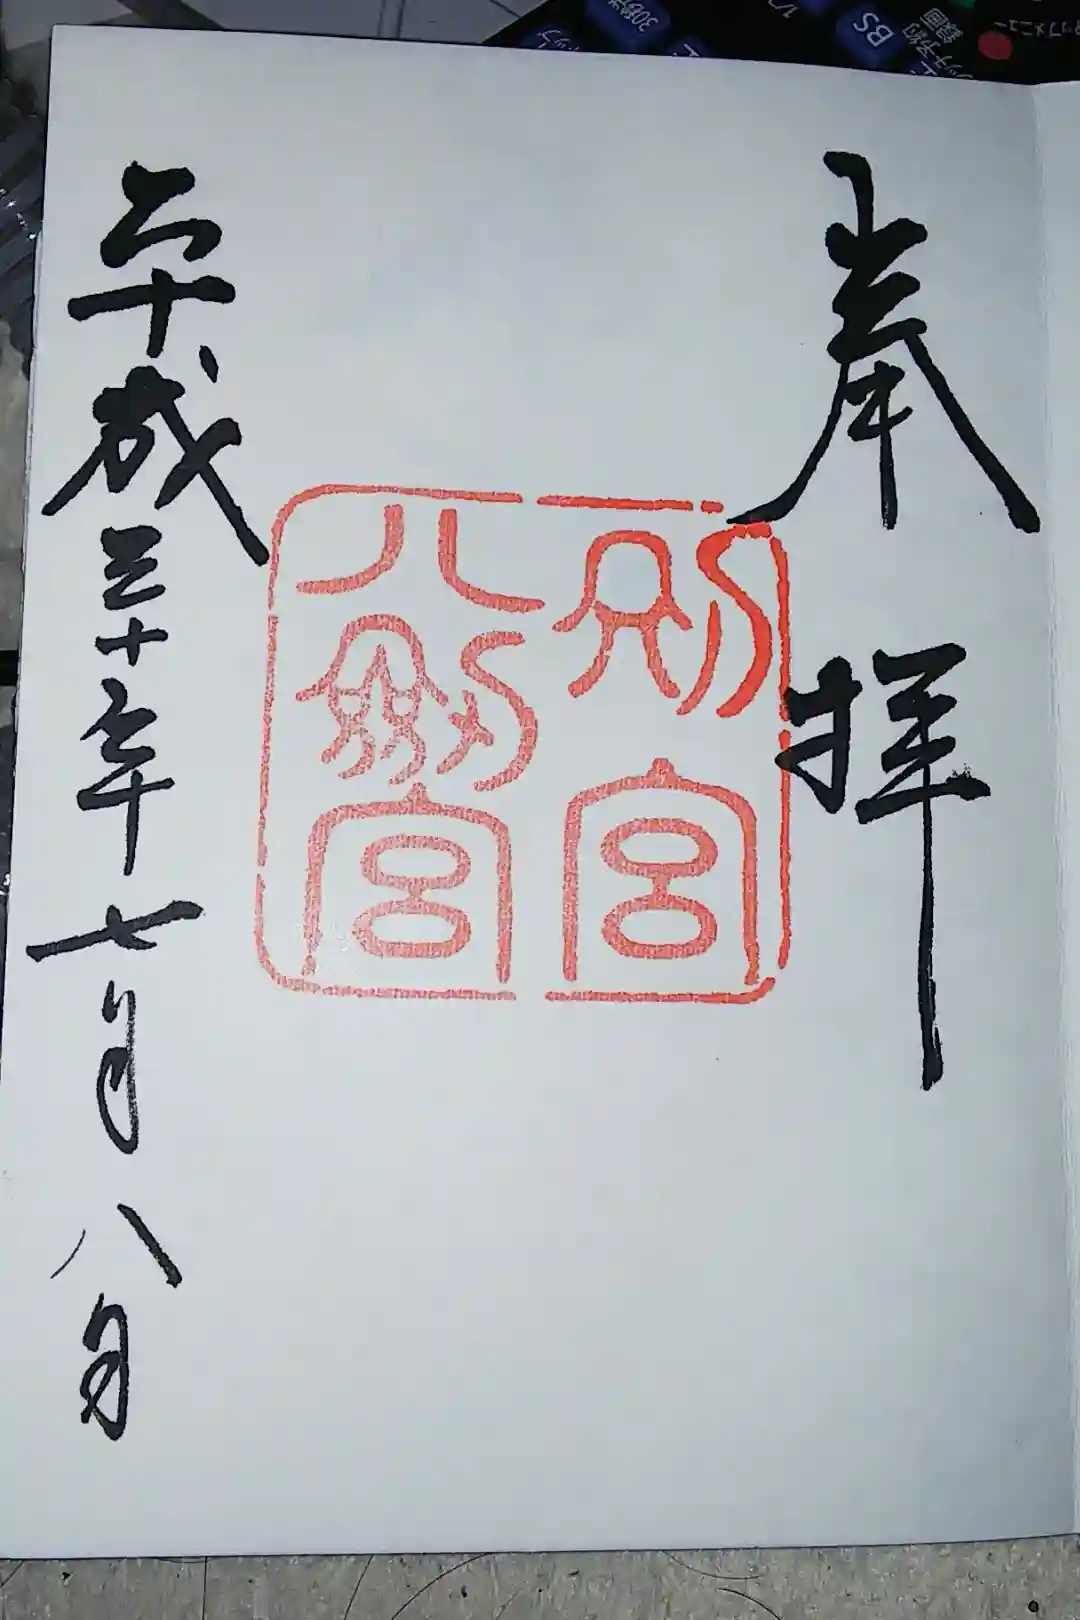 奉拝
別宮
八剣宮
平成三十年七月八日
BS